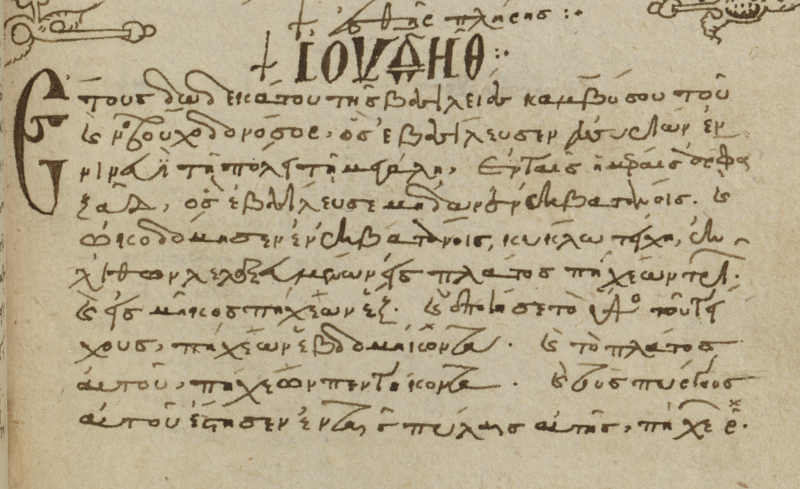 ἸΟΥΔΗΘ
Ἔτους δωδεκάτου τῆς βασιλείας καμβύσου τοῦ
καὶ ναβουχοδονόσορ, ὃς ἐβασίλευσεν ἀσσυρίων ἐν
νινευΐ τῇ πόλει τῇ μεγάλῃ, ἐν ταῖς ἡμέραις ἀρφα
ξάδ, ὃς ἐβασίλευσε μήδων ἐν ἐκβατάνοις. καὶ
ᾠκοδόμησεν ἐν ἐκβατάνοις, κύκλῳ τείχη, ἐκ
λίθων λελαξευμένων εἰς πλάτος πηχέων τριῶν.
καὶ εἰς μῆκος πηχέων ἕξ. καὶ ἐποίησε τὸ ὕψος τοῦ τεί
χους, πηχέων ἑβδομήκοντα. καὶ τὸ πλάτος
αὐτοῦ, πηχεῶν πεντήκοντα. καὶ τοὺς πύργους
αὐτοῦ ἔστησεν ἐν ταῖς πύλαις αὐτῆς, πήχεις ρ.